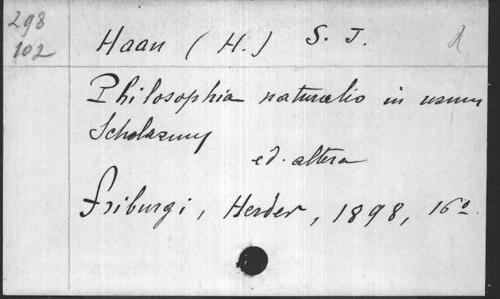 298
102
Haan (H.) S. J. d
Philosophia naturalis in usum
Scholarum
ed. altera
Friburgi, Herder, 1898, 16º.